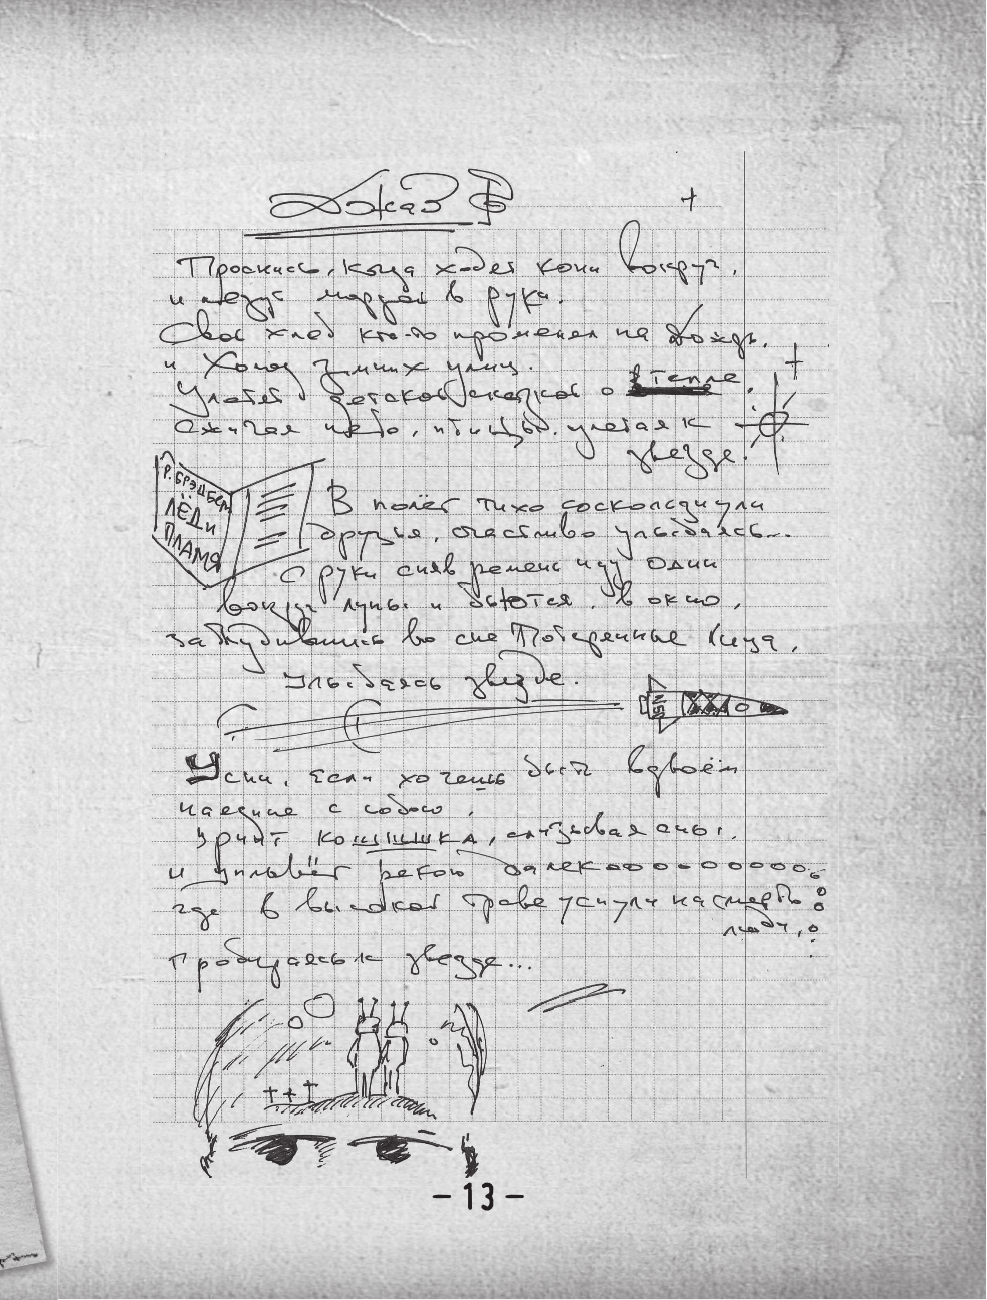 Джаз Б
Проснись, когда ходят кони вокруг,
и ведут мордой в руки.
Свой хлеб кто-то променял на дождь,
и холод зимних улиц.
Улетев детской сказкой о тепле,
Сжигая небо, птицы, улетая к
звезде.
Р. БРЭДБЕРИ
ЛЁД И
ПЛАМЯ
В полёт тихо соскользнули
друзья, счастливо улыбаясь...
С руки сняв ремень иду один
вокруг луны и бьются в окно,
заблудившись во сне Потерянные лица,
Улыбаясь звезде.
USN
Усни, если хочешь быть вдвоём
наедине с собою,
Урчит кошшшка, слизывая сны,
и уплывёт рекою далекооооооооо
где в высокой траве уснули насмерть
люди,
пробираясь к звезде...
-13-